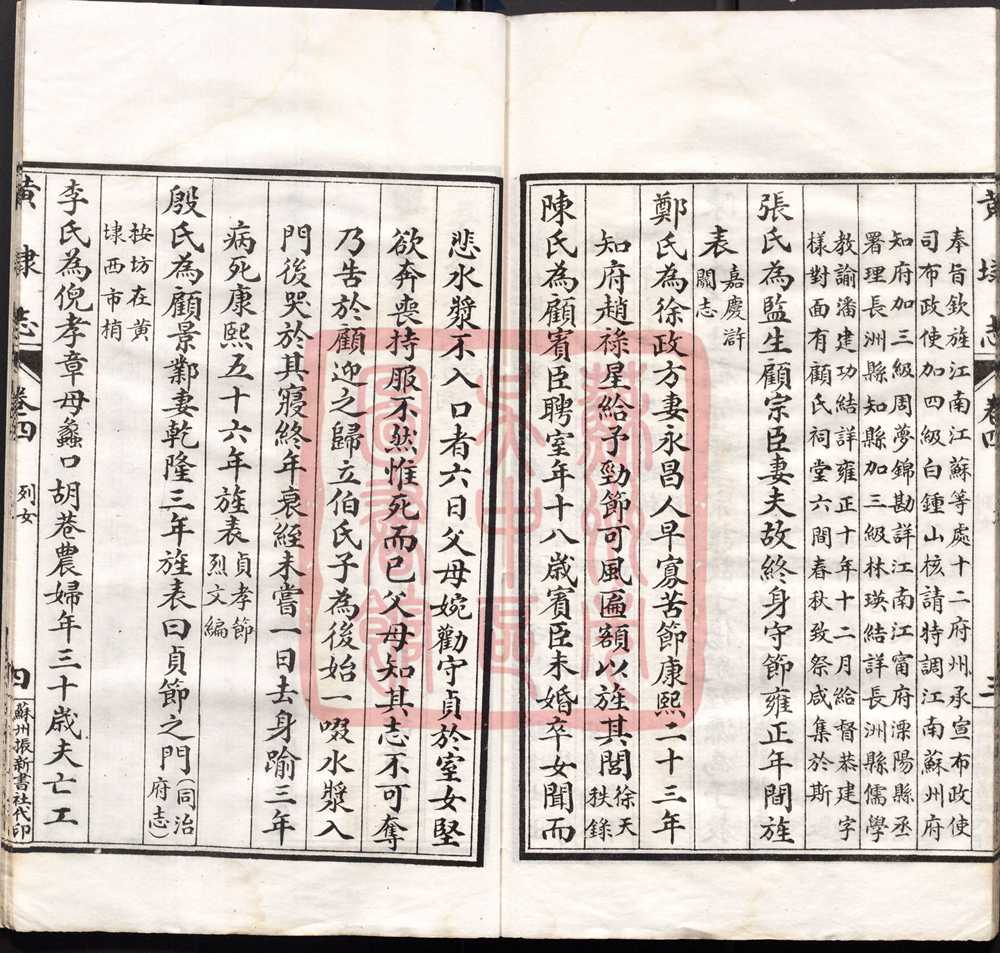 黃埭志 卷四 三
奉旨欽旌江南江蘇等處十二府州承宣布政使
司布政使加四級白鍾山核請特調江南蘇州府
知府加三級周夢錦勘詳江南江甯府溧陽縣丞
署理長洲縣知縣加三級林瑛結詳長洲縣儒學
教諭潘建功結詳雍正十年十二月給督恭建字
樣對面有顧氏祠堂六間春秋致祭咸集於斯
張氏為監生顧宗臣妻夫故終身守節雍正年間旌
表嘉慶滸關志
鄭氏為徐政方妻永昌人早寡苦節康熙二十三年
知府趙祿星給予勁節可風匾額以旌其閭徐天秩錄
陳氏為顧賓臣聘室年十八歲賓臣未婚卒女聞而
悲水漿不入口者六日父母婉勸守貞於室女堅
欲奔喪持服不然惟死而已父母知其志不可奪
乃告於顧迎之歸立伯氏子為後始一啜水漿入
門後哭於其寢終年衰絰未嘗一日去身踰三年
病死康熙五十六年旌表貞孝節烈文編
殷氏為顧景鄴妻乾隆三年旌表曰貞節之門(同治府志)
按坊在黃
埭西市梢
李氏為倪孝章母蠡口胡巷農婦年三十歲夫亡工
黃埭志 卷四 列女 四 蘇州振新書社代印
蘇州吳中區圖書館